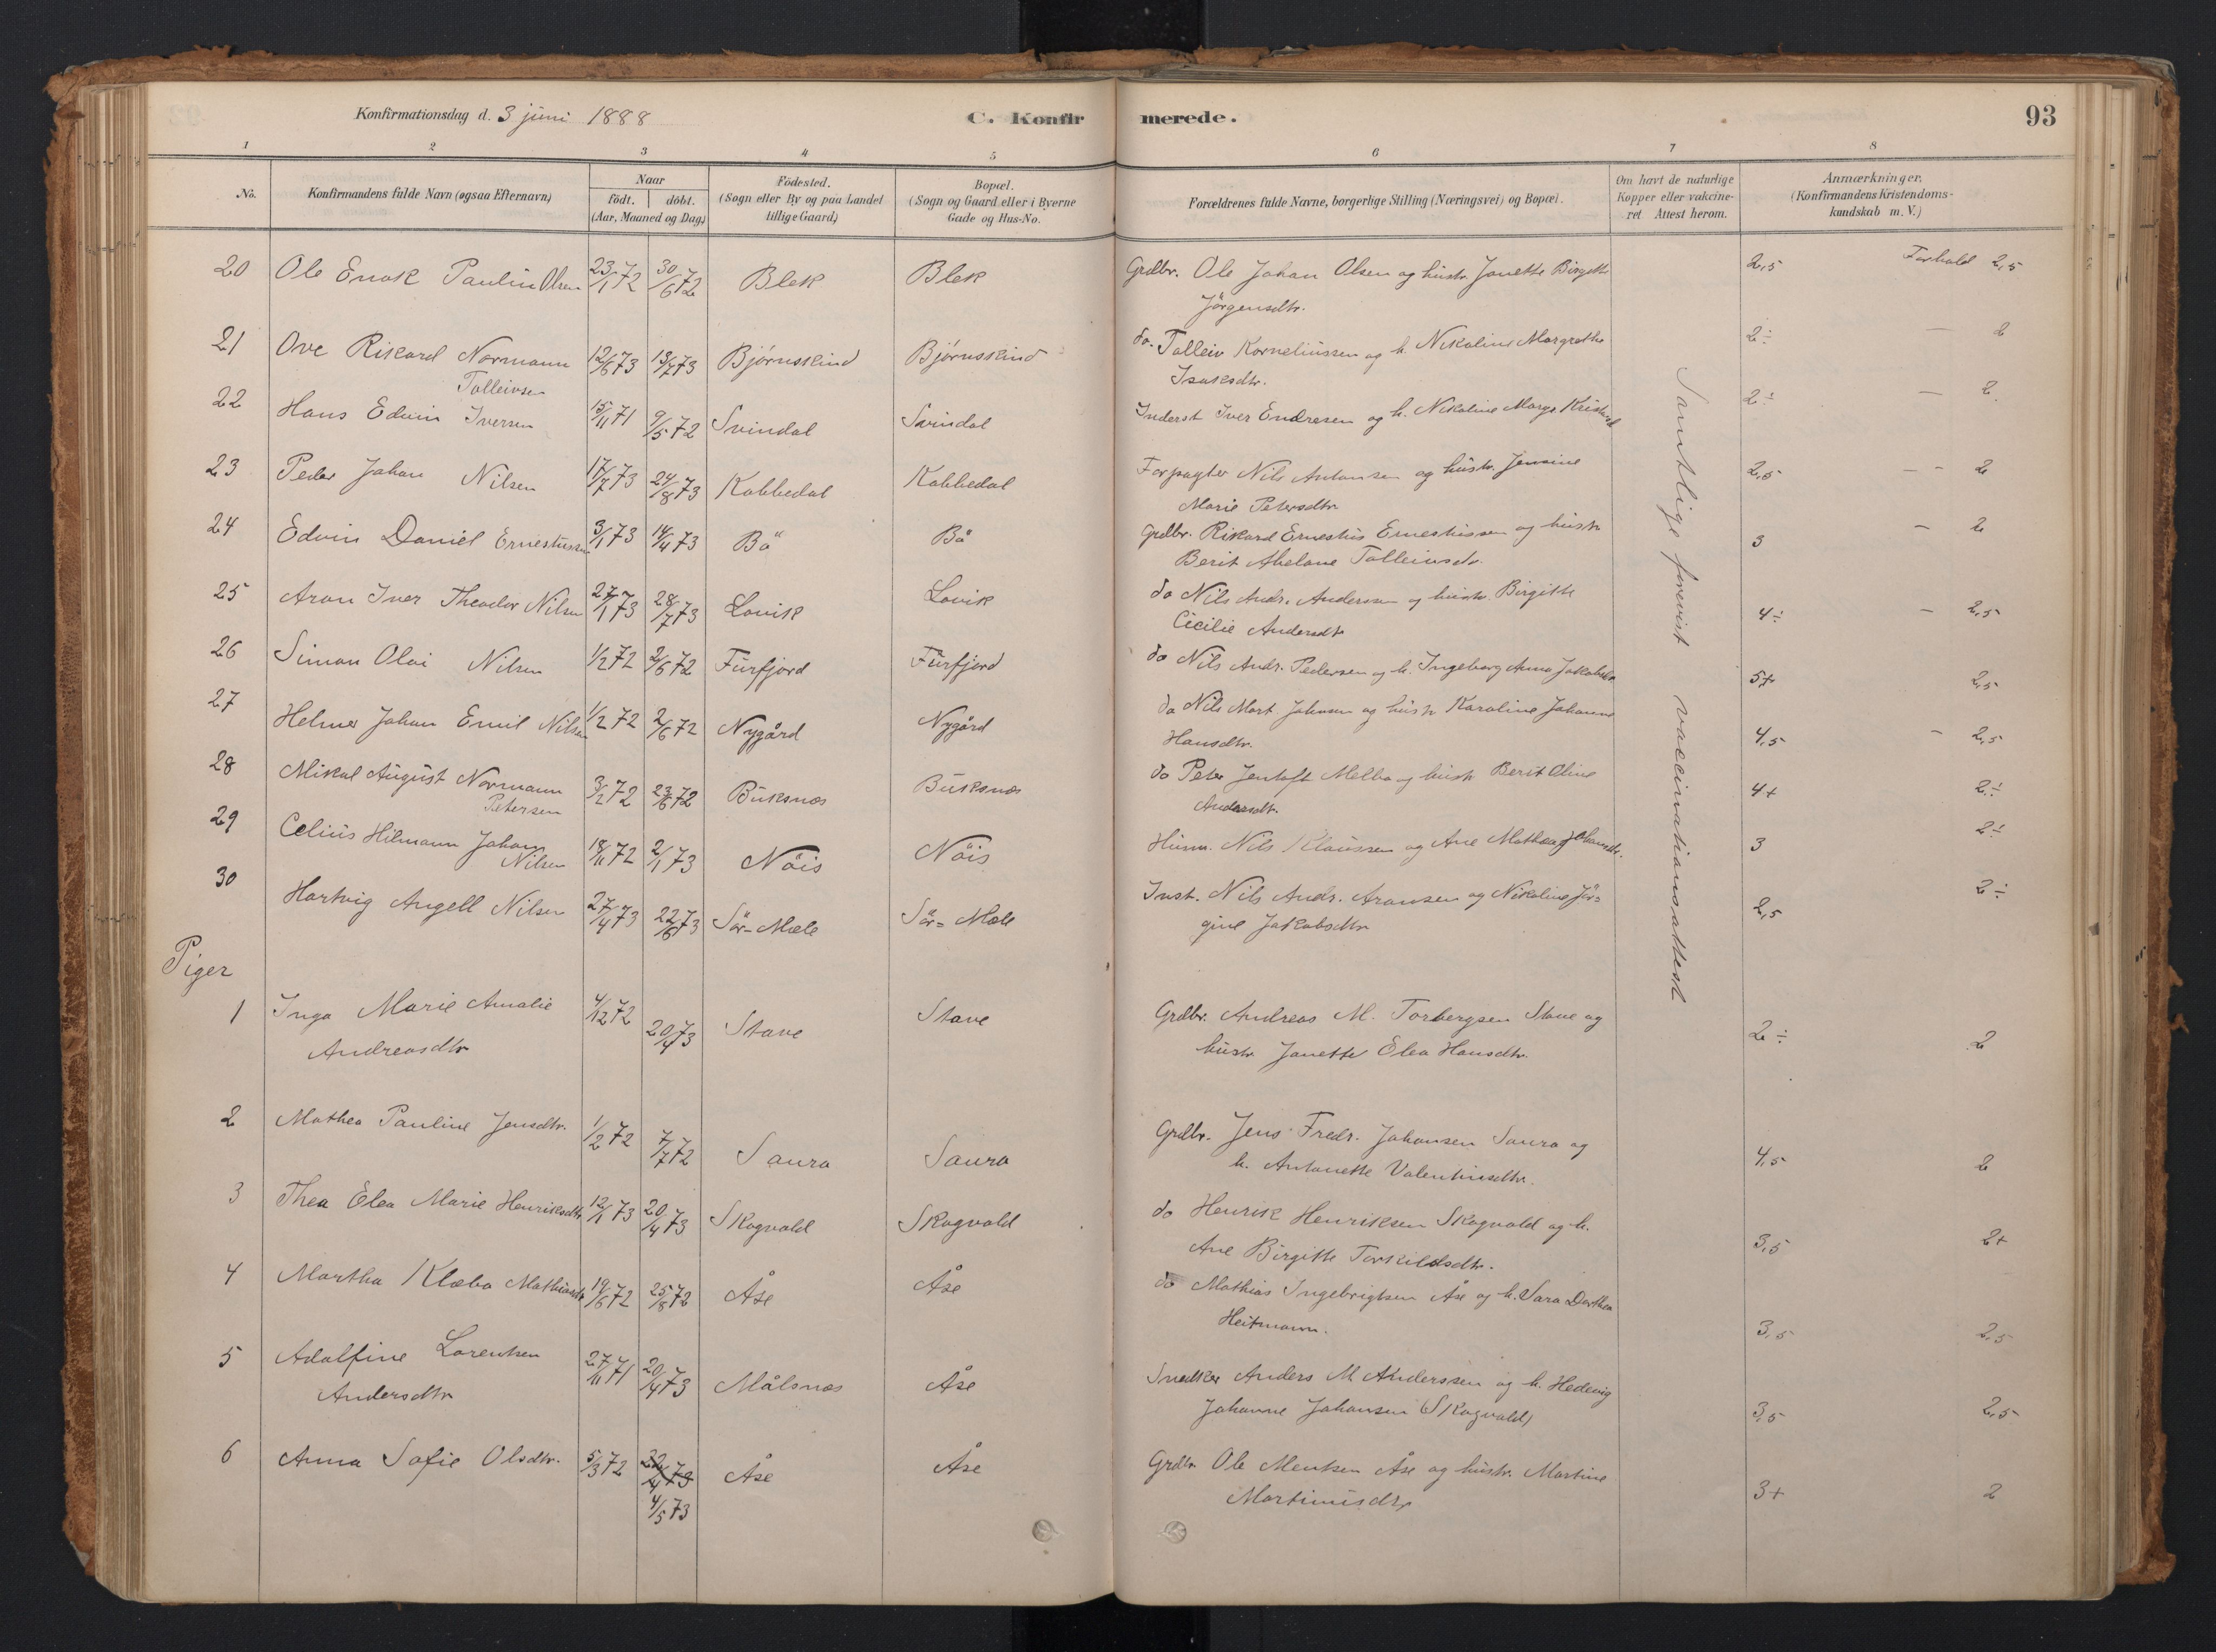 Konfirmationsdag d. 3 juni 1888
C. Konfirmerede.
93
1 2 3 4 5 6 7 8
No.
Konfirmandens fulde Navn (ogsaa Efternavn)
Naar
født. døbt.
(Aar, Maaned og Dag)
Fødested.
(Sogn eller By og paa Landet
tillige Gaard)
Bopæl.
(Sogn og Gaard eller i Byerne
Gade og Hus-No.
Forældrenes fulde Navne, borgerlige Stilling (Næringsvei) og Bopæl.
Om havt de naturlige
Kopper eller vakcine-
ret Attest herom.
Anmærkninger.
(Konfirmandens Kristendoms-
kundskab m. V.)
20 Ole Enok Paulin Olsen 23/1 72 30/6 72 Blek Blek Grdbr. Ole Johan Olsen og hustr. Janette Birgitte 2,5 Forhold 2,5
Jörgensdtr.
21 Ove Rikard Normann 12/6 73 13/7 73 Björnskind Björnskind do. Tolleiv Korneliussen og h. Nikoline Margrethe 2÷ — 2
Tolleivsen
Isaksdtr.
22 Hans Edvin Iversen 15/11 71 9/5 72 Svindal Svindal Inderst Iver Endresen og h. Nikoline Margr. 2÷ — 2
23 Peder Johan Nilsen 17/7 73 24/8 73 Kobbedal Kobbedal Forpagter Nils Antonsen og hustr. Jensine 2,5 — - 2
Marie Petersdtr
24 Edvin Daniel Ernestussen 3/1 73 14/4 73 Bö Bö Grdbr. Rikard Ernestus Ernestussen og hustr 3 — 2
Berit Abelone Tolleivsdr.
25 Aron Iver Theodor Nilsen 27/1 73 28/7 73 Lovik Lovik do Nils Andr. Anderssen og hustr. Birgitte 4÷ — 2,5
Cicilie Andersdtr
26 Simon Olai Nilsen 1/2 72 2/6 72 Furfjord Furfjord do Nils Andr. Pedersen og h. Ingeborg Anna Jakobsdtr 5+ 2,5
27 Helmer Johan Emil Nilsen 1/2 72 2/6 72 Nygård Nygård do Nils Mart. Johnsen og hustr Karoline Johanna 4,5 - 2,5
Hansdtr.
28 Mikal August Normann 3/2 72 23/6 72 Buksnæs Buksnæs do Peter Jentoft Melbo og hustr Berit Oline 4+ 2÷
Petersen
Andersdtr.
29 Celius Hilmann Johan 18/11 72 2/1 73 Nöis Nöis Husm. Nils Klaussen og Ane Mathea Johansdtr. 3 2÷
Nilsen
30 Hartvig Angell Nilsen 27/4 73 22/6 73 Sör-Mele Sör=Mele Inst. Nils Andr. Aronsen og Nikoline Jör= 2,5 2÷
gine Jakobsdtr
Samtlige forevist vaccinationsattest
Piger
1 Inga Marie Amalie 4/12 72 20/4 73 Stave Stave Grdbr. Andreas M. Torbergsen Stave og 2÷ 2
Andreasdtr
hustr Janette Elea Hansdtr.
2 Mathea Pauline Jensdtr. 1/2 72 7/7 72 Saura Saura Grdbr. Jens Fredr. Johansen Saura og 4,5 2
h. Antonette Valentinsdtr.
3 Thea Elea Marie Henriksdtr 12/1 73 20/4 73 Skogvold Skogvold do Henrik Henriksen Skogvold og h. 3,5 2+
Ane Birgitte Torkildsdtr.
4 Martha Klæbo Mathiasdtr 19/6 72 25/8 72 Åse Åse do Mathias Ingebrigtsen Åse og h. Sara Dorthea 3,5 2,5
Heitmann.
5 Adolfine Lorentsen 27/11 71 20/4 73 Målsnæs Åse Snedker Anders M. Anderssen og h. Hedevig 3,5 2,5
Andersdtr
Johanne Johansen (Skogvold)
6 Anna Sofie Olsdtr. 5/3 72 4/5 73 Åse Åse Grdbr Ole Mentsen Åse og hustr. Martine 3+ 2
Martinusdtr